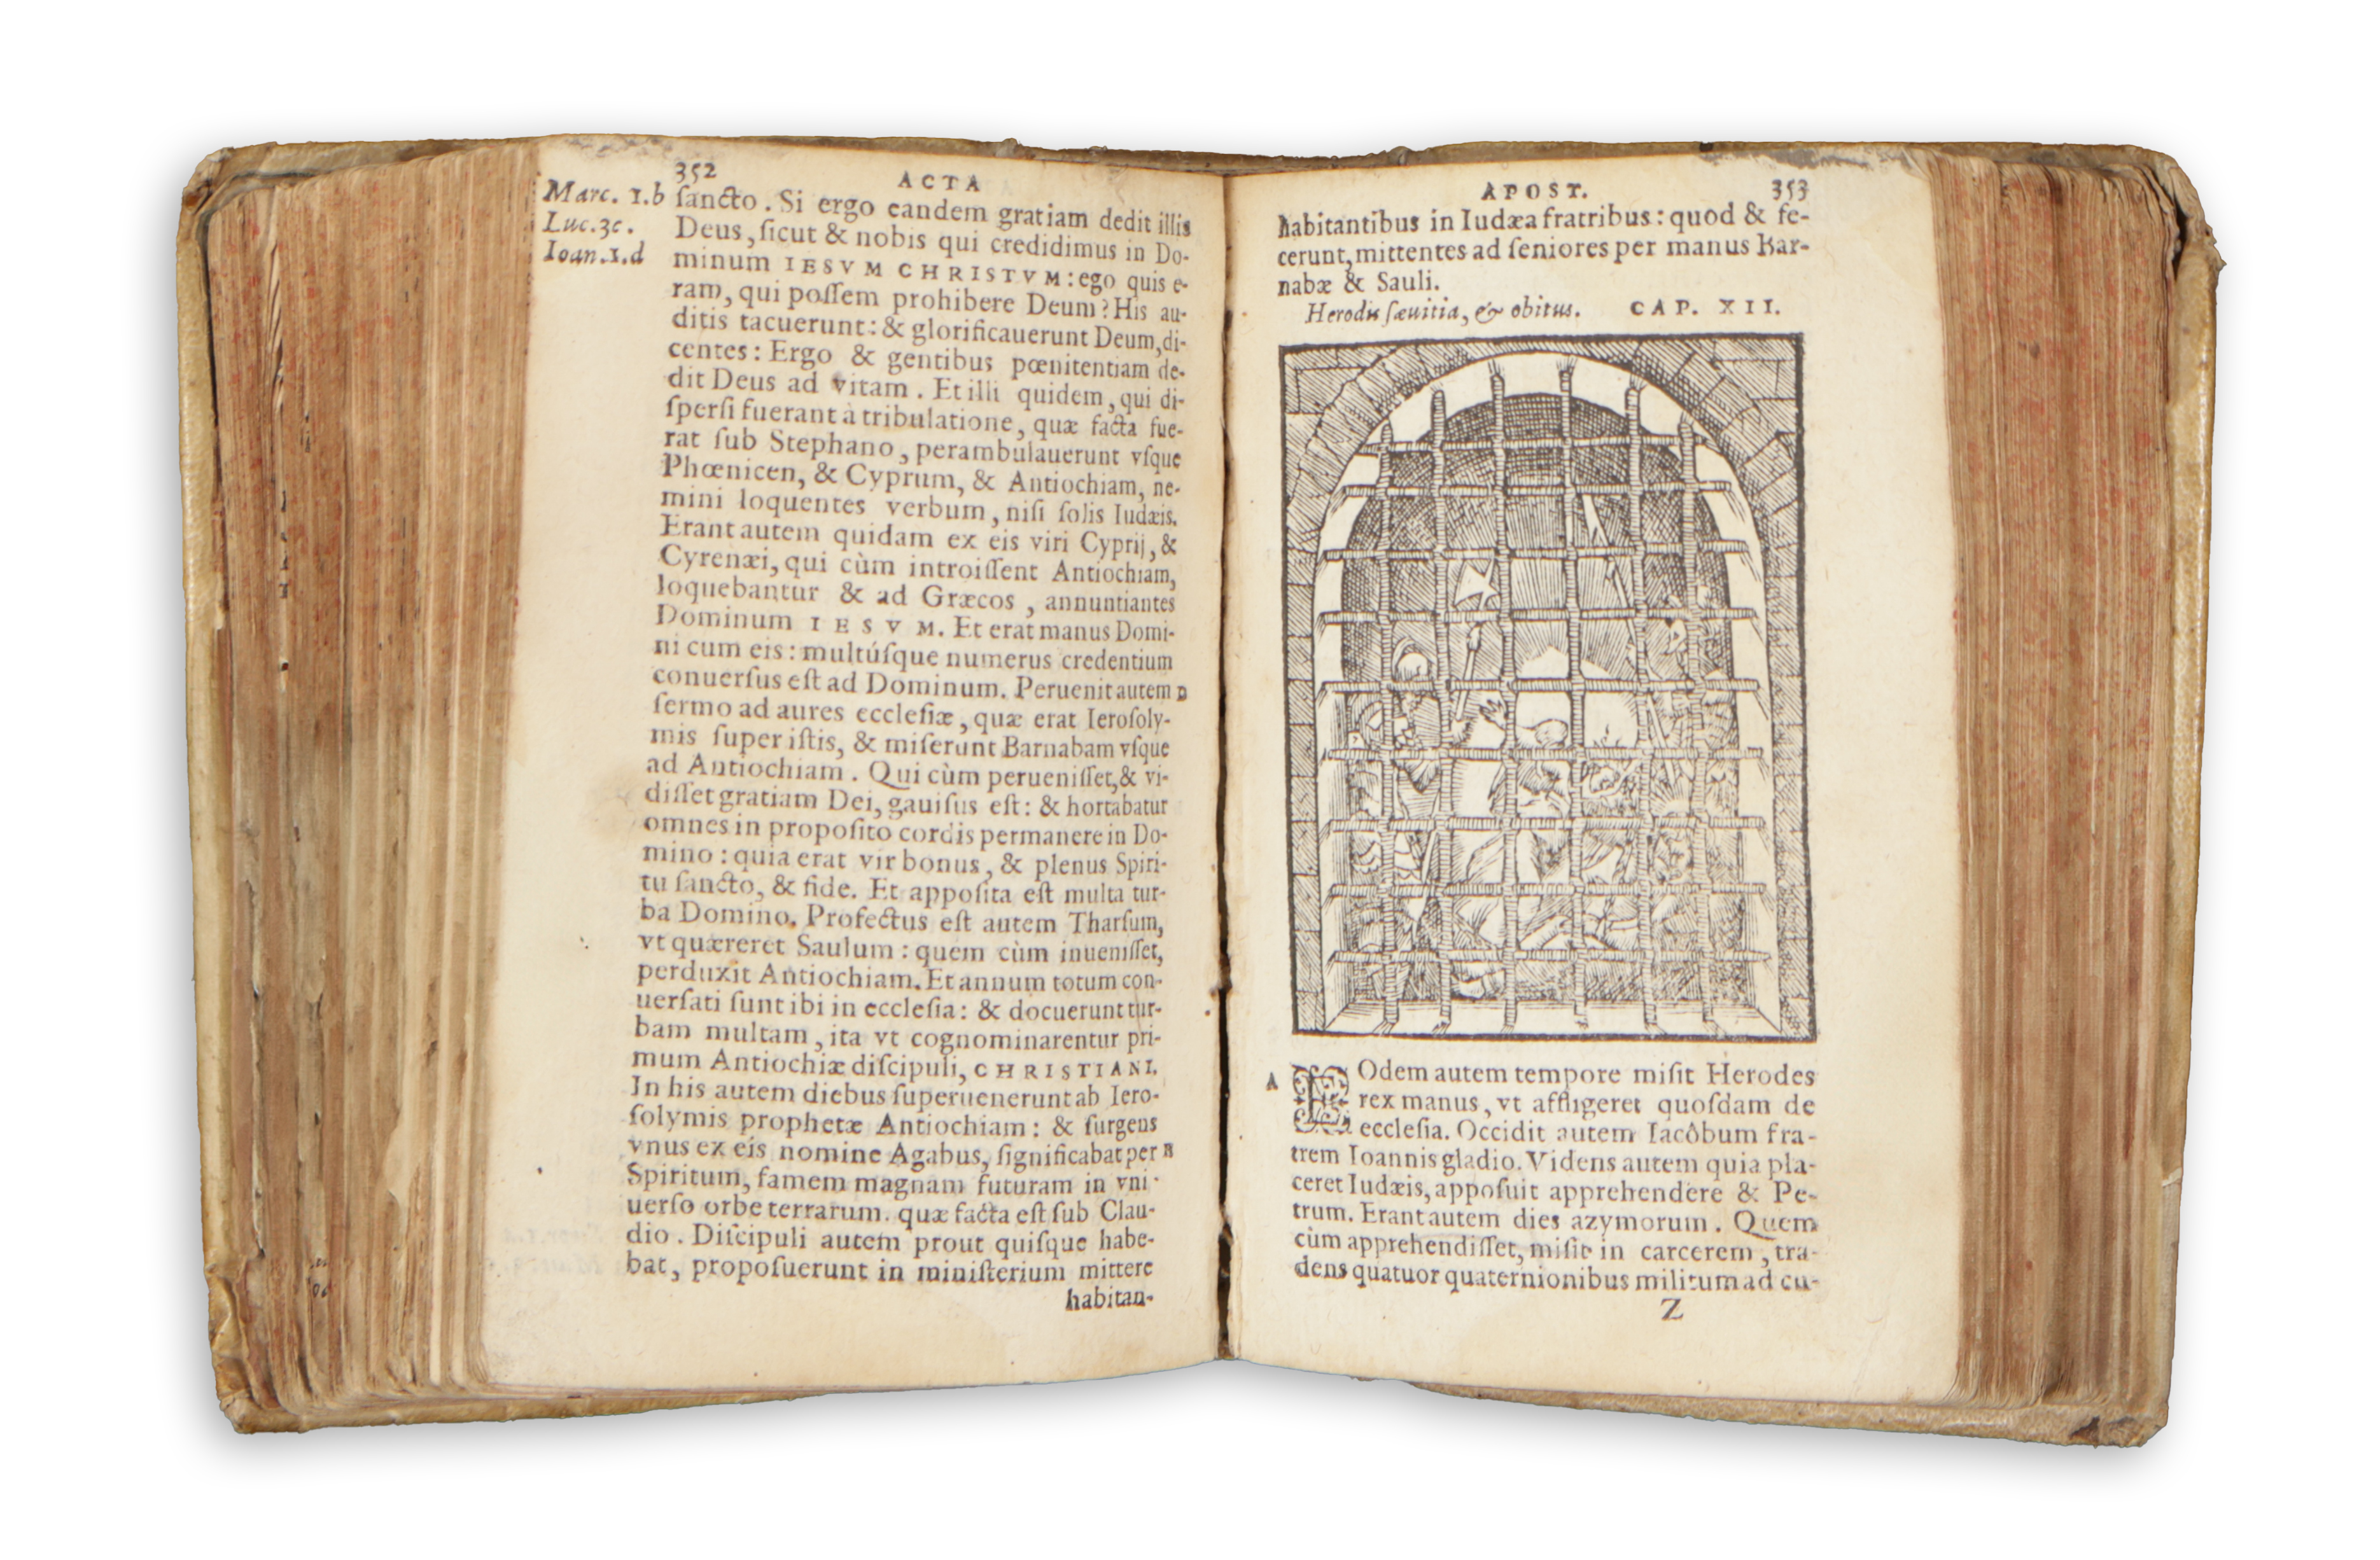 352
ACTA
Marc. 1.b
Luc.3c.
Ioan.1.d
ſancto. Si ergo eandem gratiam dedit illis
Deus, ſicut & nobis qui credidimus in Do-
minum IESVM CHRISTVM: ego quis e-
ram, qui poſſem prohibere Deum? His au-
ditis tacuerunt: & glorificauerunt Deum, di-
centes: Ergo & gentibus pœnitentiam de-
dit Deus ad vitam. Et illi quidem, qui di-
ſperſi fuerant à tribulatione, quæ facta fue-
rat ſub Stephano, perambulauerunt vſque
Phœnicen, & Cyprum, & Antiochiam, ne-
mini loquentes verbum, niſi ſolis Iudæis.
Erant autem quidam ex eis viri Cyprij, &
Cyrenæi, qui cùm introiſſent Antiochiam,
loquebantur & ad Græcos, annuntiantes
Dominum IESVM. Et erat manus Domi-
ni cum eis: multúſque numerus credentium
conuerſus eſt ad Dominum. Peruenit autem D
ſermo ad aures eccleſiæ, quæ erat Ieroſoly-
mis ſuper iſtis, & miſerunt Barnabam vſque
ad Antiochiam. Qui cùm perueniſſet, & vi-
diſſet gratiam Dei, gauiſus eſt: & hortabatur
omnes in propoſito cordis permanere in Do-
mino: quia erat vir bonus, & plenus Spiri-
tu ſancto, & fide. Et appoſita eſt multa tur-
ba Domino. Profectus eſt autem Tharſum,
vt quæreret Saulum: quem cùm inueniſſet,
perduxit Antiochiam. Et annum totum con-
uerſati ſunt ibi in eccleſia: & docuerunt tur-
bam multam, ita vt cognominarentur pri-
mum Antiochiæ diſcipuli, CHRISTIANI.
In his autem diebus ſuperuenerunt ab Iero-
ſolymis prophetæ Antiochiam: & ſurgens
vnus ex eis nomine Agabus, ſignificabat per
Spiritum, famem magnam futuram in vni-
uerſo orbe terrarum. quæ facta eſt ſub Clau-
dio. Diſcipuli autem prout quiſque habe-
bat, propoſuerunt in miniſterium mittere
habitan-
APOST.
353
habitantibus in Iudæa fratribus: quod & fe-
cerunt, mittentes ad ſeniores per manus Bar-
nabæ & Sauli.
Herodis ſæuitia, & obitus. CAP. XII.
A EOdem autem tempore miſit Herodes
rex manus, vt affligeret quoſdam de
eccleſia. Occidit autem Iacôbum fra-
trem Ioannis gladio. Videns autem quia pla-
ceret Iudæis, appoſuit apprehendere & Pe-
trum. Erant autem dies azymorum. Quem
cùm apprehendiſſet, miſit in carcerem, tra-
dens quatuor quaternionibus militum ad cu-
Z